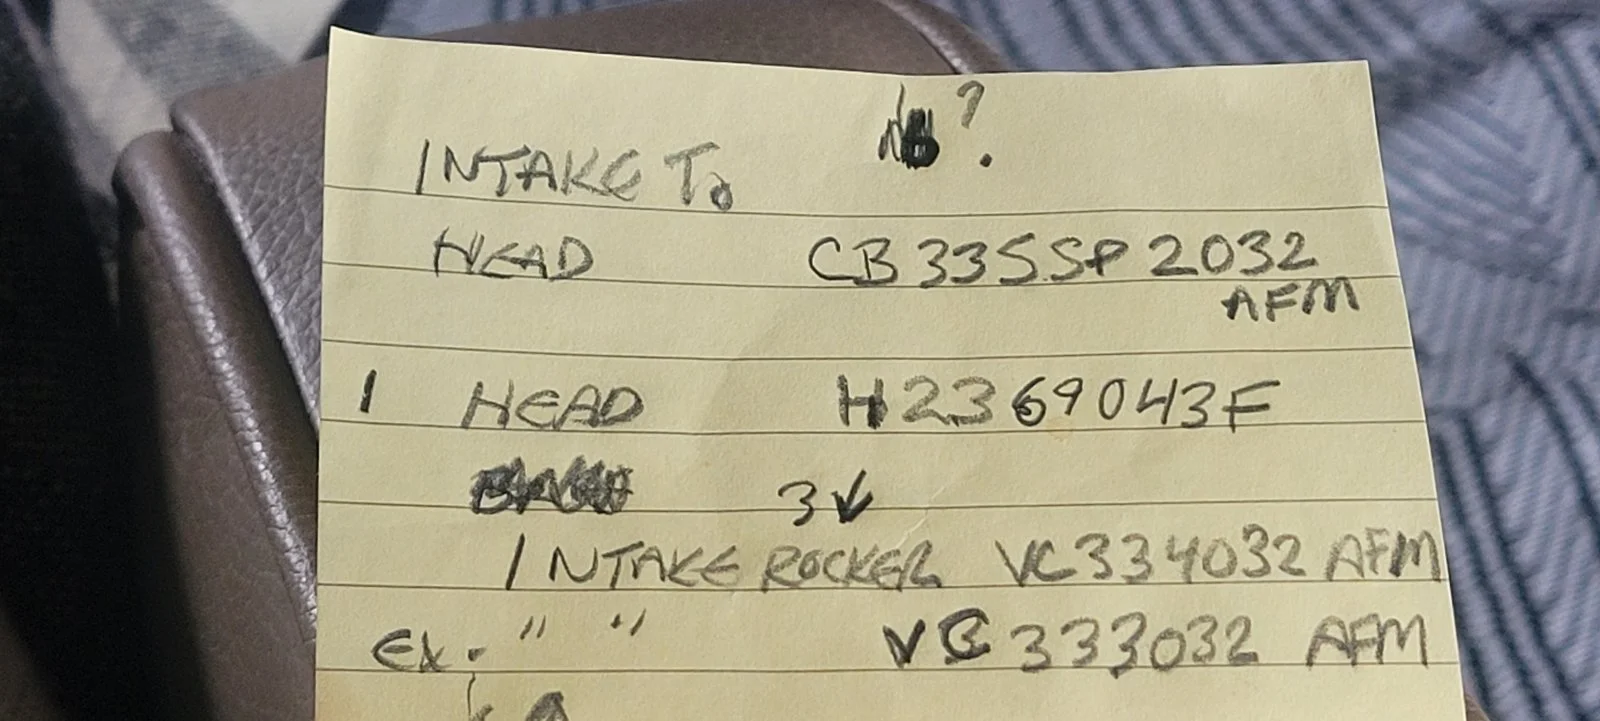 ?
INTAKE To
HEAD CB335SP2032
AFM
1 HEAD H2369043F
3↓
INTAKE ROCKER VC334032 AFM
Ex. " " VC333032 AFM